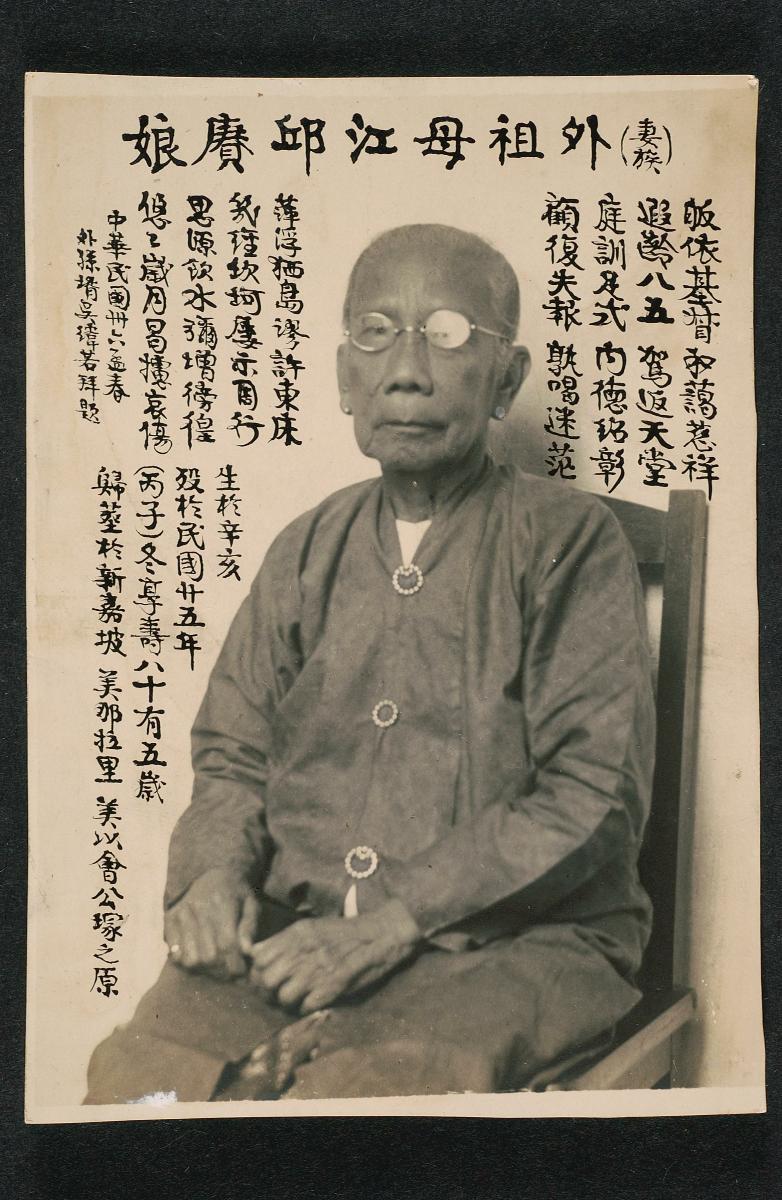 (妻族)外祖母江邱賡娘
皈依基督 和藹慈祥
遐齡八五 駕返天堂
庭訓足式 內德紹彰
顧復失報 孰喝迷茫
萍浮島 謬許東床
我雖坎坷 屢示周行
思源飲水 彌增徬徨
悠々歲月 曷攄哀傷
中華民國卅六孟春
外孫壻吳瑋若拜題
生於辛亥
歿於民國廿五年
(丙子)冬享壽八十有五歲
歸塟於新嘉坡 美那拉里 美以會公塚之原